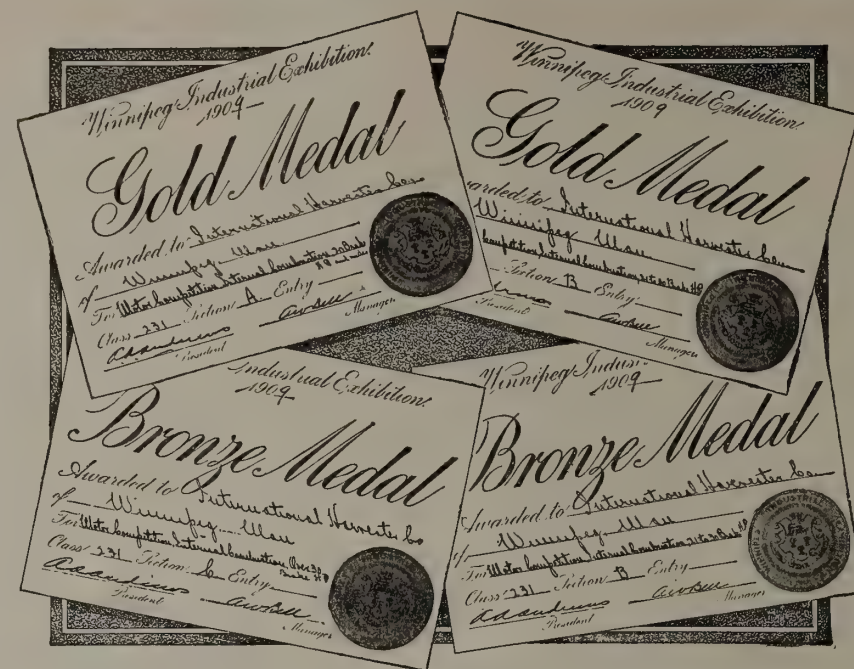 Winnipeg Industrial Exhibition.
1909
Gold Medal
Awarded to International Harvester Co.
of Winnipeg Man
For Motor Competition Internal Combustion 20 Brake
H P and under
Class 231 Section A Entry
A A Andrews
President
A W Bell
Manager
Winnipeg Industrial Exhibition.
1909
Gold Medal
arded to International Harvester Co
Winnipeg Man
Competition Internal Combustion 21 to 30 Brake HP
Section B Entry
President
A W Bell
Manager
Industrial Exhibition.
1909
Bronze Medal
Awarded to International Harvester Co
of Winnipeg Man
For Motor Competition Internal Combustion Over 30
Brake HP
Class 231 Section C Entry
A A Andrews
President
A W Bell
Manager
Winnipeg Indus
1909
Bronze Medal
Awarded to International Harvester Co
of Winnipeg Man
For Motor Competition Internal Combustion 21 to 30 Brake HP
Class 231 Section B Entry
A A Andrews
President
A W Bell
Manager
INDUSTRIAL